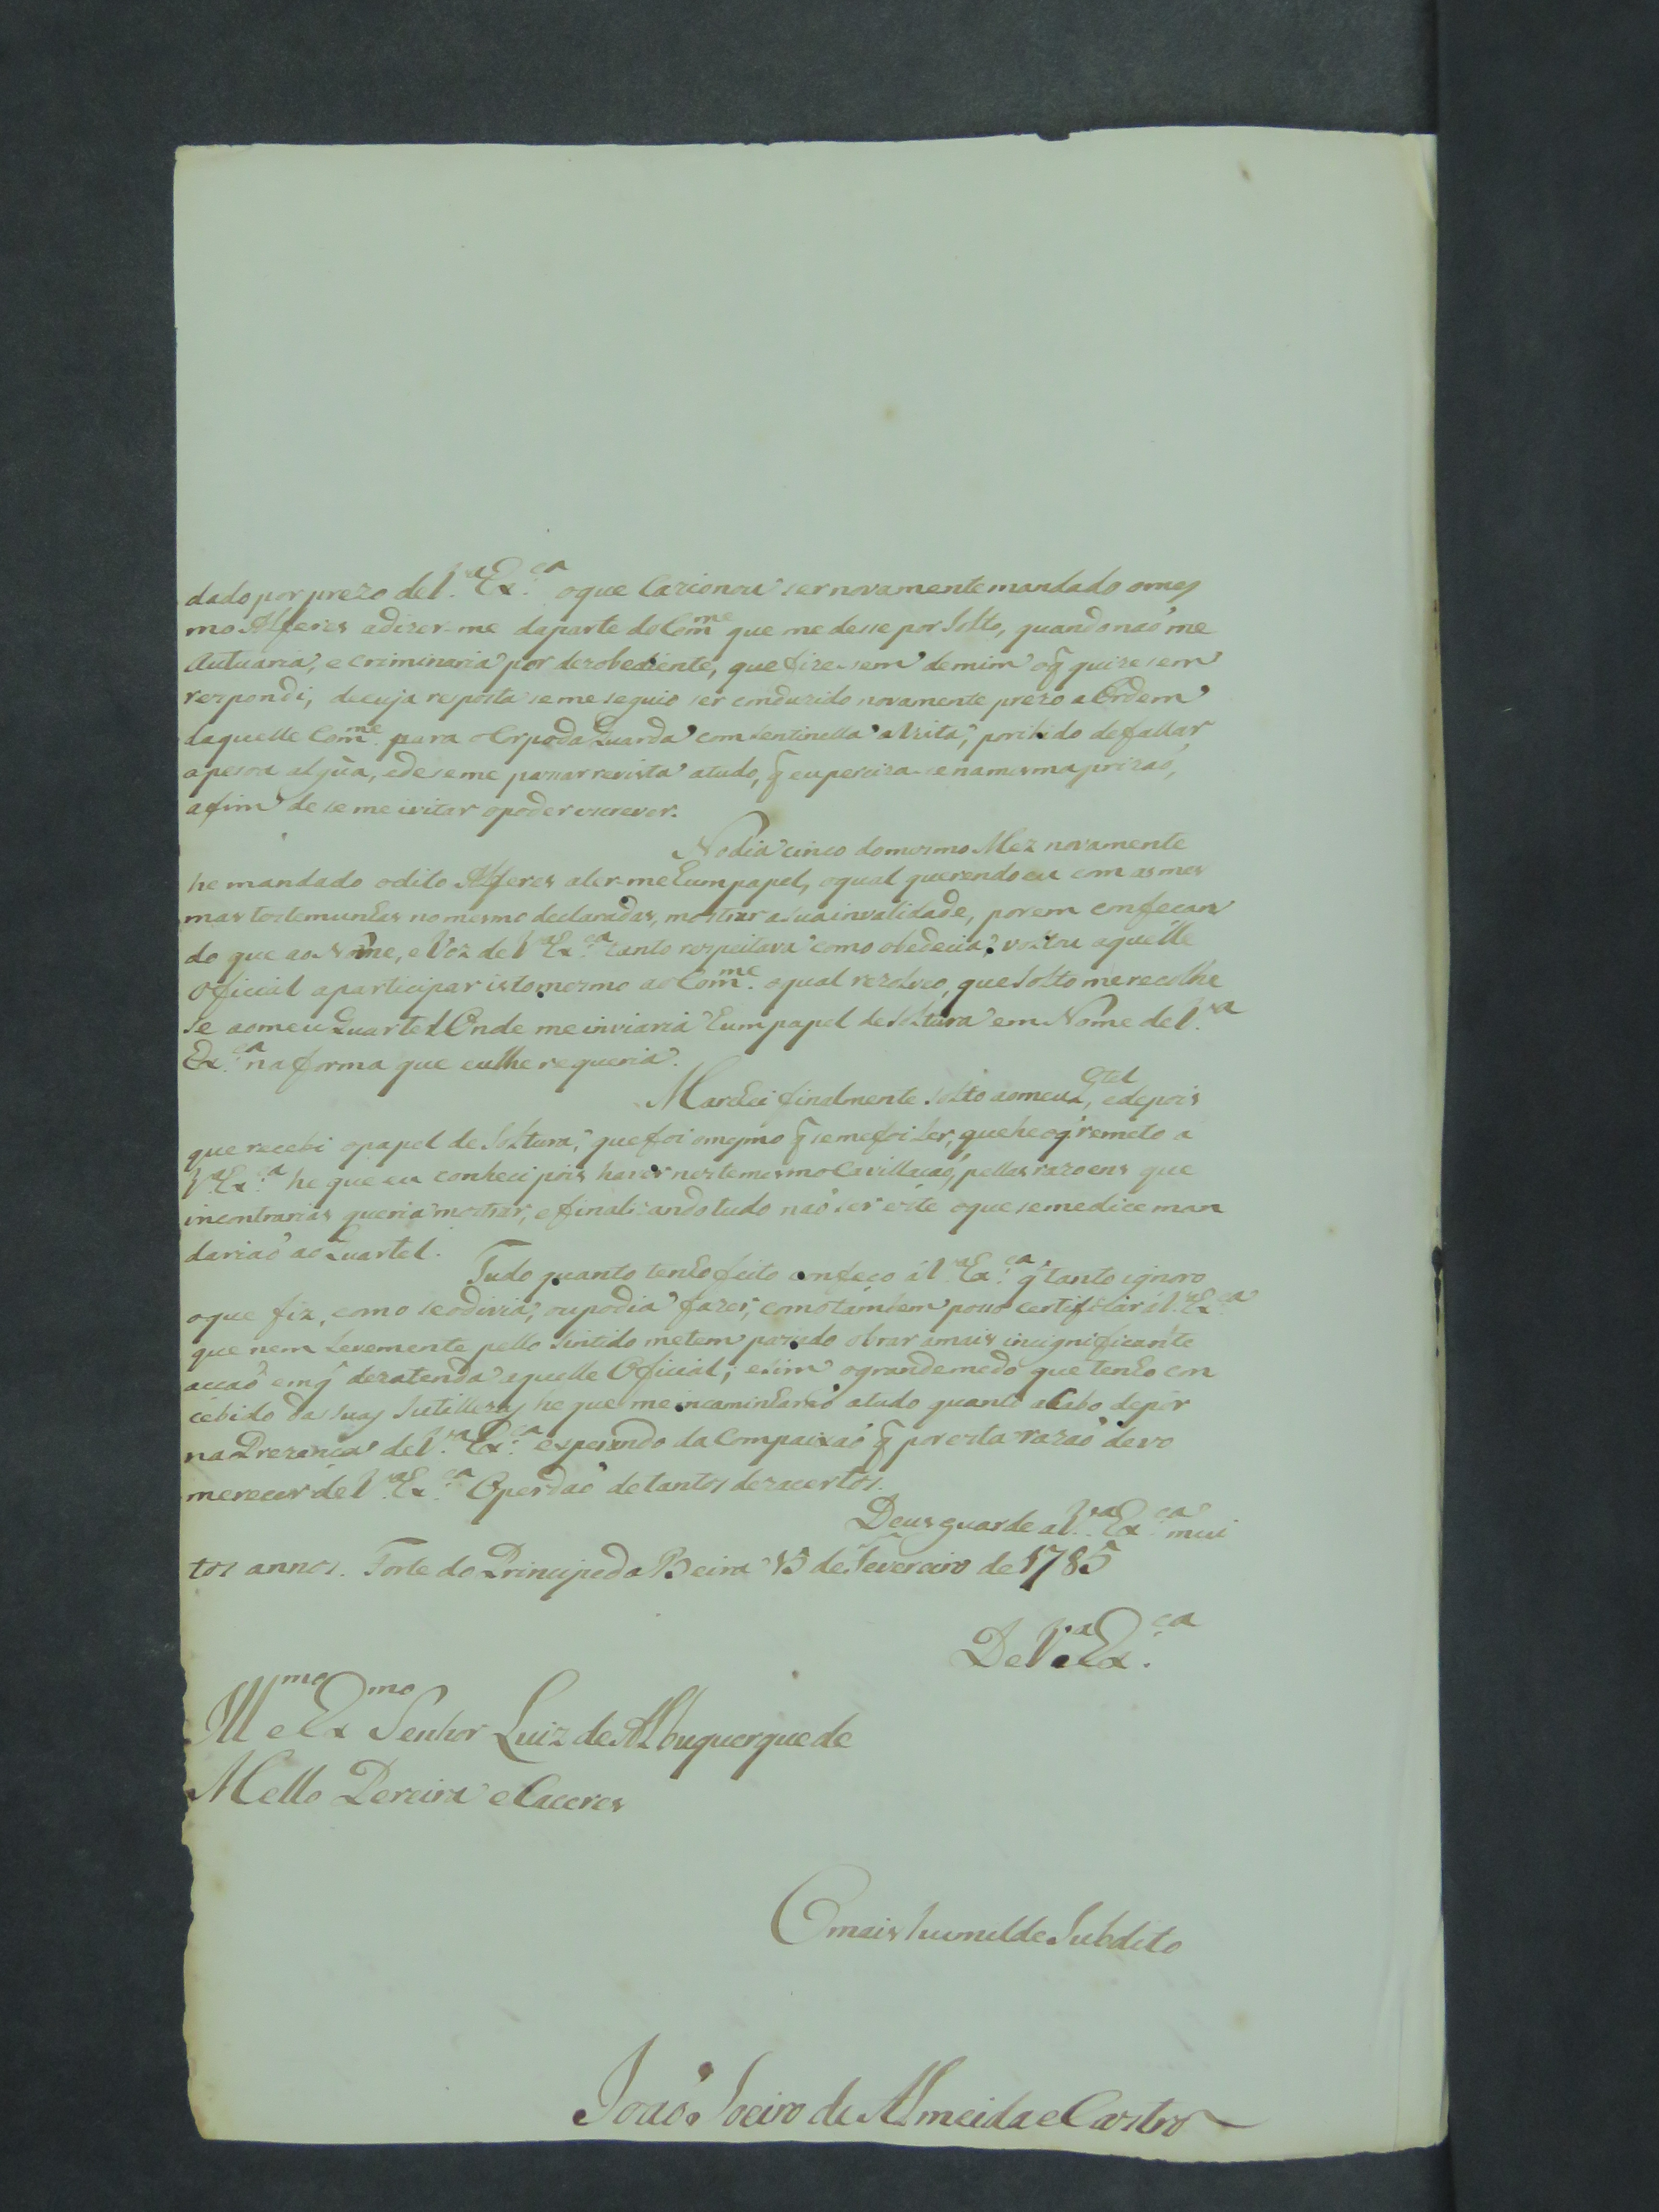 dado por prezo de V.ª Ex.ca o que Cazionou ser novamente mandado o mes
mo Alferes a dizer-me da parte do Com.me que me desse por Solto, quando naõ me
Autuaria, e criminaria por dezobediente, que fizesem de mim o q̃ quizesem
respondi, de cuja reposta se me seguio ser conduzido novamente prezo a Ordem
daquelle Com.me para o Corpo da Guarda com sentinella a vista, poribido de fallar
a pesoa algũa, e de se me passar revista a tudo, q̃ eu percizase na mesma prizaõ,
a fim de se me ivitar o poder escrever.
No dia cinco do mesmo Mez novamente
he mandado o dito Alferes a ler-me hum papel, o qual querendo eu com as mes
mas testemunhas no mesmo declaradas, mostrar a sua invalidade, porem confecan
do que ao Nome, e Voz de V.ª Ex.ca tanto respeitava como obedecia: voltou aquelle
Oficial a participar isto mesmo ao Com.me o qual rezolveo, que Solto me recolhe
se ao meu Quartel Onde me inviaria hum papel de Soltura em Nome de V.ra
Ex.ca na forma que eu lhe requeria.
Marchei finalmente Solto ao meu Q.tel, e depois
que recebi o papel de Soltura, que foi o mesmo q̃ se me foi Ler, que he o q̃ remeto a
V.ª Ex.ca he que eu conheci pois haver neste mesmo Cavillacaõ, pellas razoens que
incontrarias queria mostrar, e finalizando tudo naõ ser este o que se me dice man
dariaõ ao Quartel.
Tudo quanto tenho feito confeco á V.ª Ex.ca q̃ tanto ignoro
o que fiz, como se o divia, ou podia fazer; como tambem poso certificar á V.ª Ex.ca
que nem Levemente pello Sintido me tem pasado obrar a mais incignificante
accaõ em q̃ dezatenda aquelle Oficial; e sim o grande medo que tenho con
cebido das suas Sutillezas he que me incaminharaõ a tudo quanto acabo de pôr
na Prezença de V.ra Ex.ca esperando da Compaixaõ q̃ por esta razaõ devo
merecer de V.ª Ex.ca O perdaõ de tantos dezacertos.
Deus guarde a V.ra Ex.ca mui
tos annos. Forte do Principe da Beira 15 de Fevereiro de 1785
De V.ª Ex.ca
Ill.mo e Ex.mo Senhor Luiz de Albuquerque de
Mello Pereira e Caceres
O mais humilde Subdito
Joaõ Soeiro de Almeida e Castro